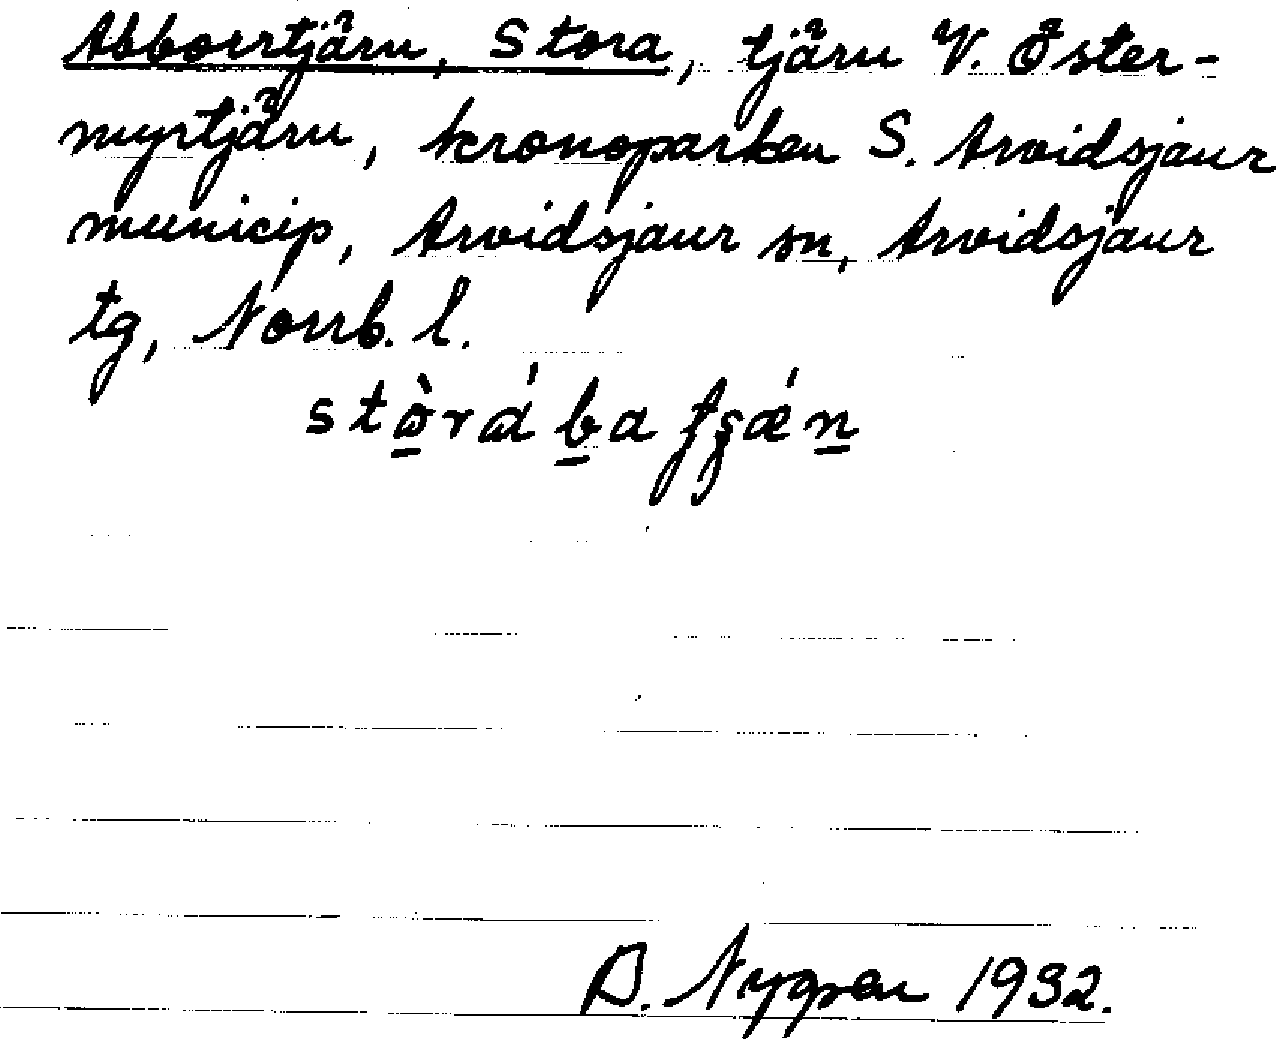 Abborrtjärn, Stora, tjärn V. Öster-
myrtjärn, kronoparken S. Arvidsjaur
municip, Arvidsjaur sn, Arvidsjaur
tg, Norrb. l.
B. Nygren 1932.